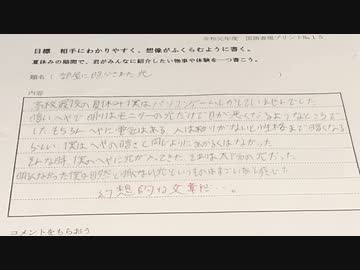 令和元年度 国語表現プリントNo.15
目標 相手にわかりやすく、想像がふくらむように書く。
夏休みの期間で、君がみんなに紹介したい物事や体験を一つ書こう。
題名(部屋に照らされた光)
内容
高校最後の夏休み僕はパソコンゲームしかしていませんでした
暗いへやで明りはモニターの光だけで目が悪くなるようなところで
した。もちろんへやに電気はある 人は明りがないと性格まで暗くなる
らしい 僕はへやの暗さと同じように
そんな時 僕のへやに光が入ってきた それは太陽の光だった
明るくなかった僕は自然と光というものはすごいなと感じた
幻想的な文章だ…。
コメントをもらおう